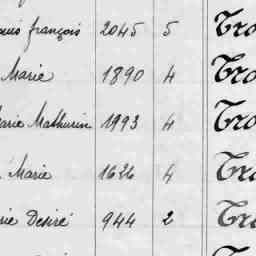 ouis françois 2045 5 Tro
Marie 1890 4 Tro
Marie Mathurin 1993 4 Tro
Marie 1626 4 Tro
rie Desiré 944 2 Tro